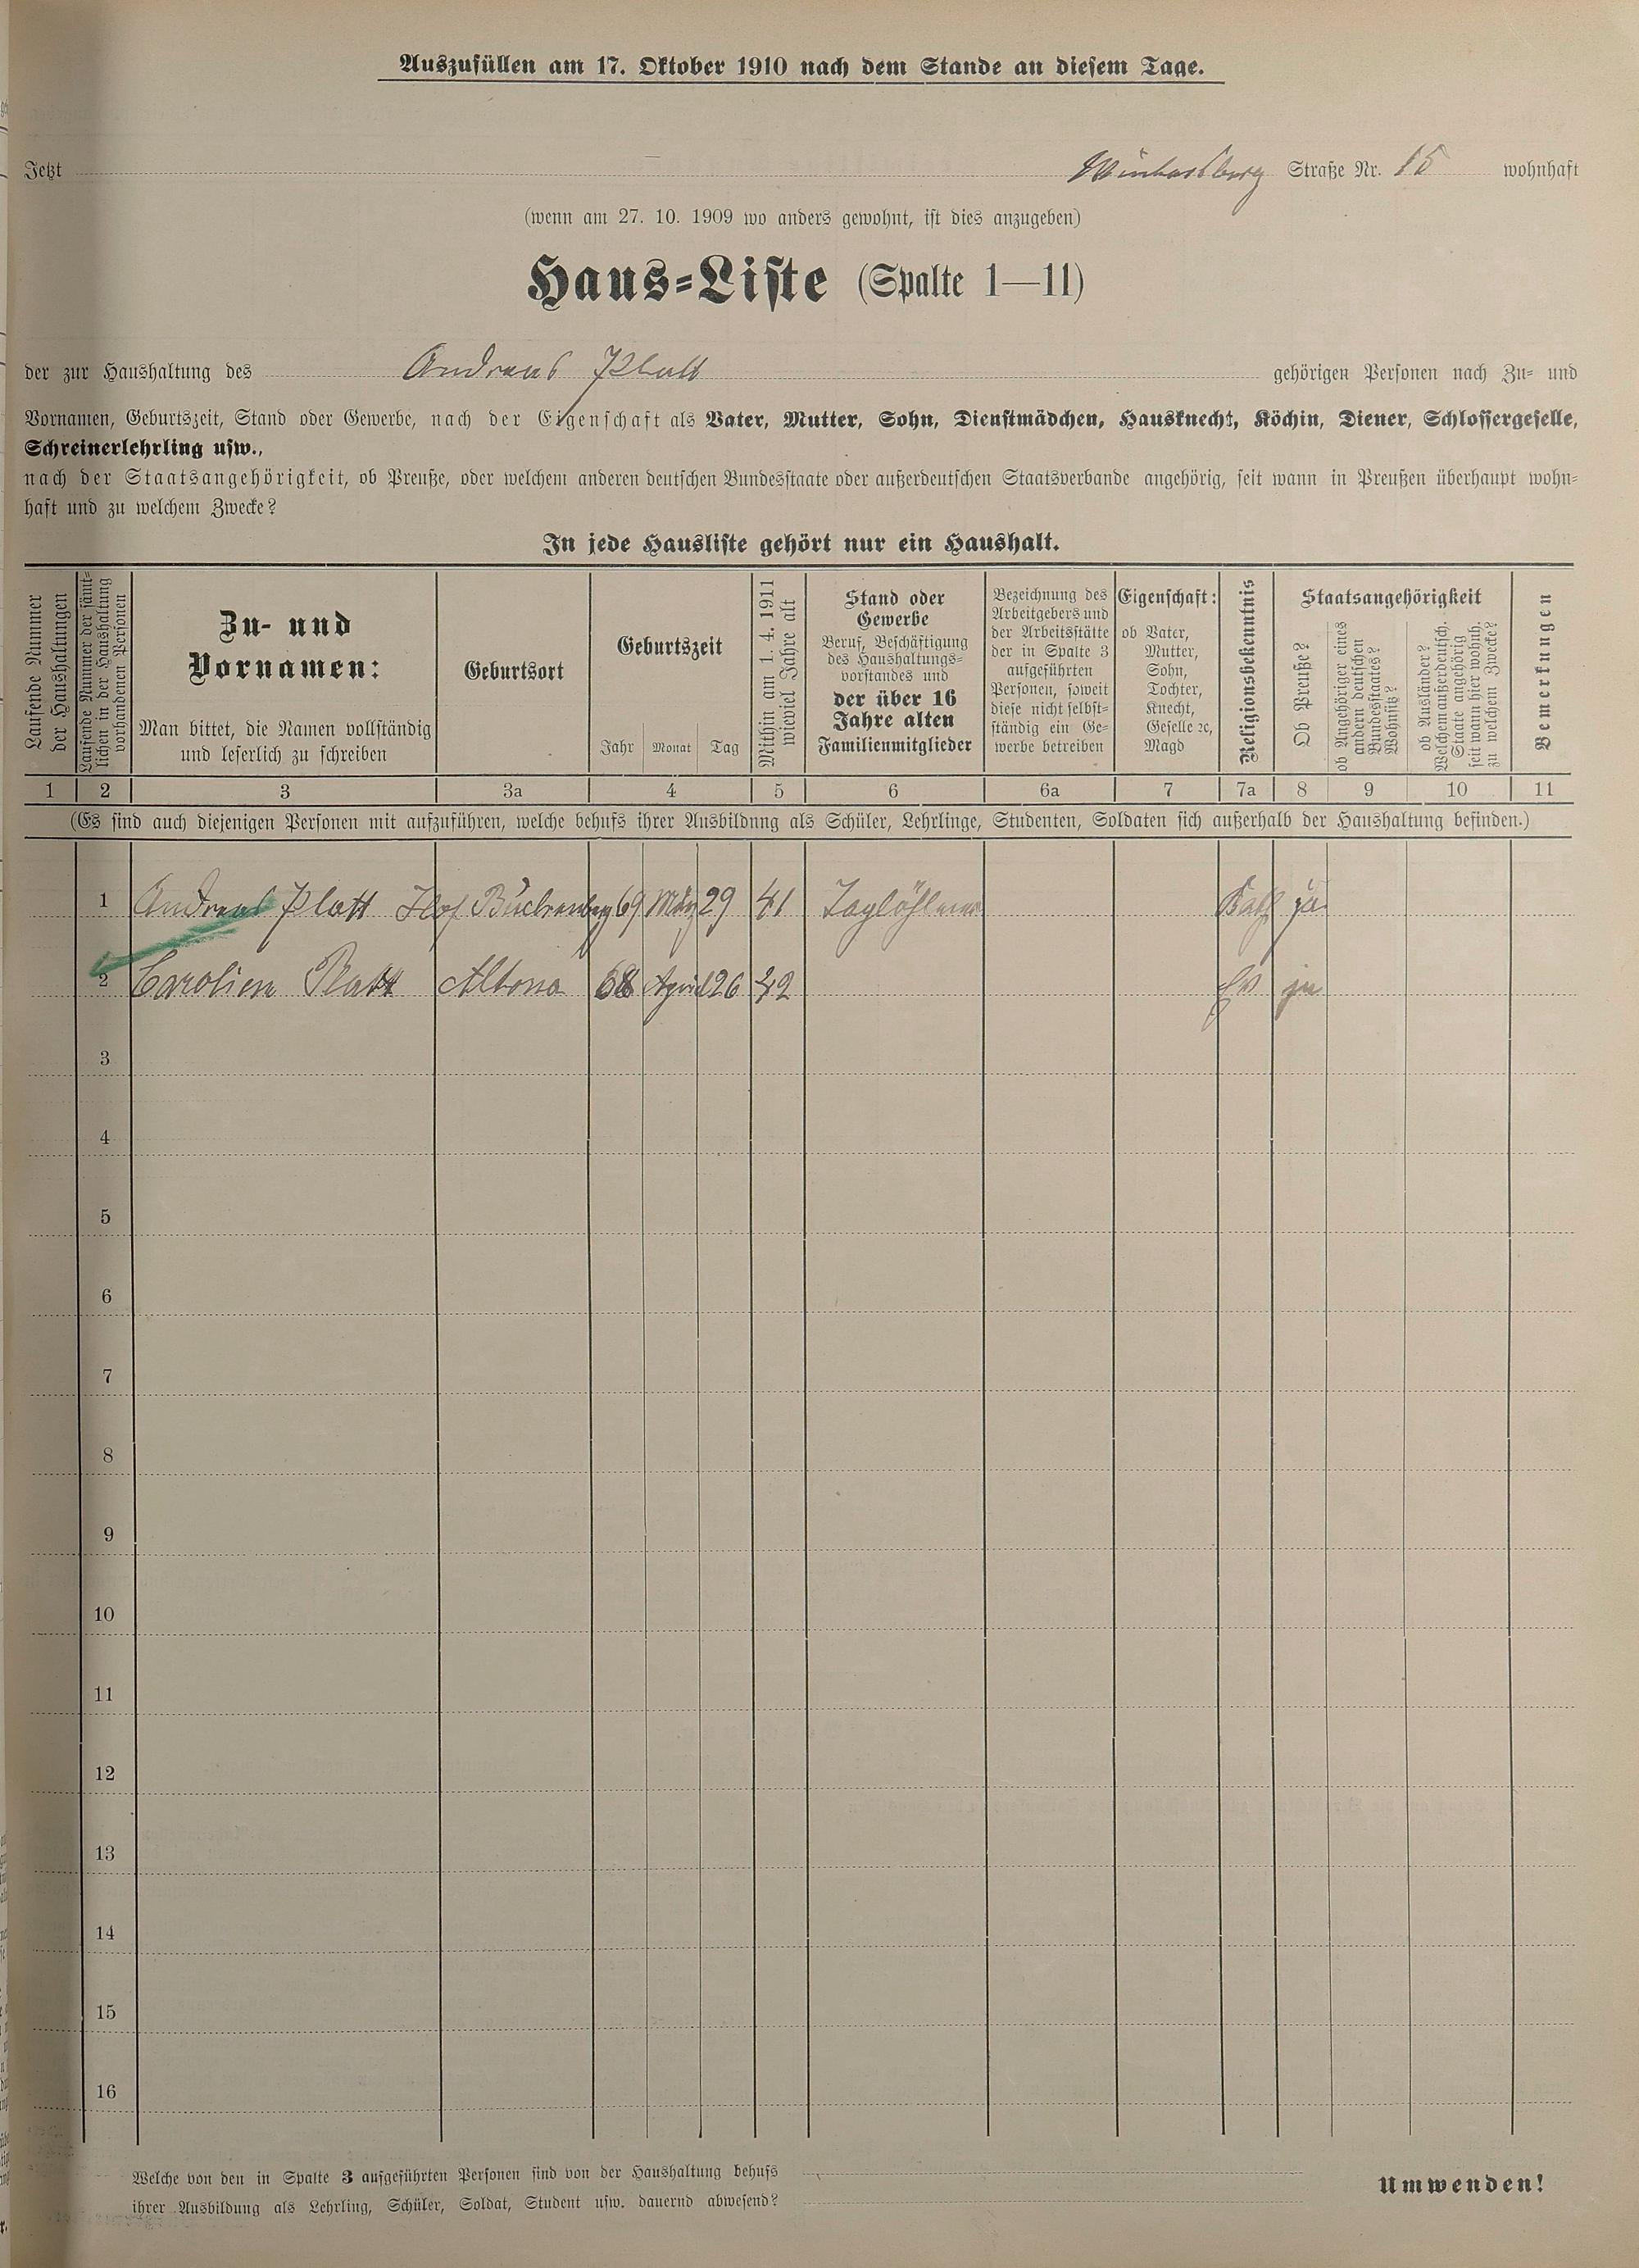 Auszufüllen am 17. Oktober 1910 nach dem Stande an diesem Tage.
Jetzt Straße Nr. 15 wohnhaft
(wenn am 27. 10. 1909 wo anders gewohnt, ist dies anzugeben)
Haus-Liste (Spalte 1—11)
der zur Haushaltung des Andreas Platt gehörigen Personen nach Zu- und
Vornamen, Geburtszeit, Stand oder Gewerbe, nach der Eigenschaft als Vater, Mutter, Sohn, Dienstmädchen, Hausknecht, Köchin, Diener, Schlossergeselle,
Schreinerlehrling usw.,
nach der Staatsangehörigkeit, ob Preuße, oder welchem anderen deutschen Bundesstaate oder außerdeutschen Staatsverbande angehörig, seit wann in Preußen überhaupt wohn-
haft und zu welchem Zwecke?
In jede Hausliste gehört nur ein Haushalt.
Laufende Nummer
der Haushaltungen
Laufende Nummer der sämt-
lichen in der Haushaltung
vorhandenen Personen
Zu- und
Vornamen:
Man bittet, die Namen vollständig
und leserlich zu schreiben
Geburtsort
Geburtszeit
Jahr Monat Tag
Mithin am 1. 4. 1911
wieviel Jahre alt
Stand oder
Gewerbe
Beruf, Beschäftigung
des Haushaltungs-
vorstandes und
der über 16
Jahre alten
Familienmitglieder
Bezeichnung des
Arbeitgebers und
der Arbeitsstätte
der in Spalte 3
aufgeführten
Personen, soweit
diese nicht selbst-
ständig ein Ge-
werbe betreiben
Eigenschaft:
ob Vater,
Mutter,
Sohn,
Tochter,
Knecht,
Geselle ꝛc,
Magd
Religionsbekenntnis
Staatsangehörigkeit
Ob Preuße?
ob Angehöriger eines
andern deutschen
Bundesstaates?
Wohnsitz?
ob Ausländer?
Welchem außerdeutsch.
Staate angehörig
seit wann hier wohnh.
zu welchem Zwecke?
Bemerkungen
1 2 3 3a 4 5 6 6a 7 7a 8 9 10 11
(Es sind auch diejenigen Personen mit aufzuführen, welche behufs ihrer Ausbildung als Schüler, Lehrlinge, Studenten, Soldaten sich außerhalb der Haushaltung befinden.)
1 Andreas Platt Hof Buchenberg 69 März 29 41 Kath ja
2 Carolien Platt Altona 68 April 26 42 Ev ja
3
4
5
6
7
8
9
10
11
12
13
14
15
16
Welche von den in Spalte 3 aufgeführten Personen sind von der Haushaltung behufs
ihrer Ausbildung als Lehrling, Schüler, Soldat, Student usw. dauernd abwesend?
Umwenden!